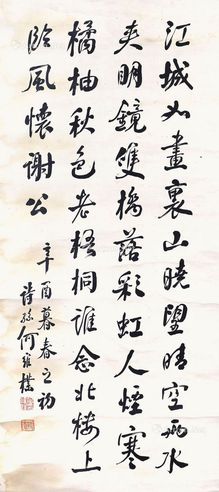 江城如畫裏山曉望晴空兩水
夾明鏡雙橋落彩虹人煙寒
橘柚秋色老梧桐誰念北樓上
臨風懷謝公
辛酉暮春之初
詩孫何維樸